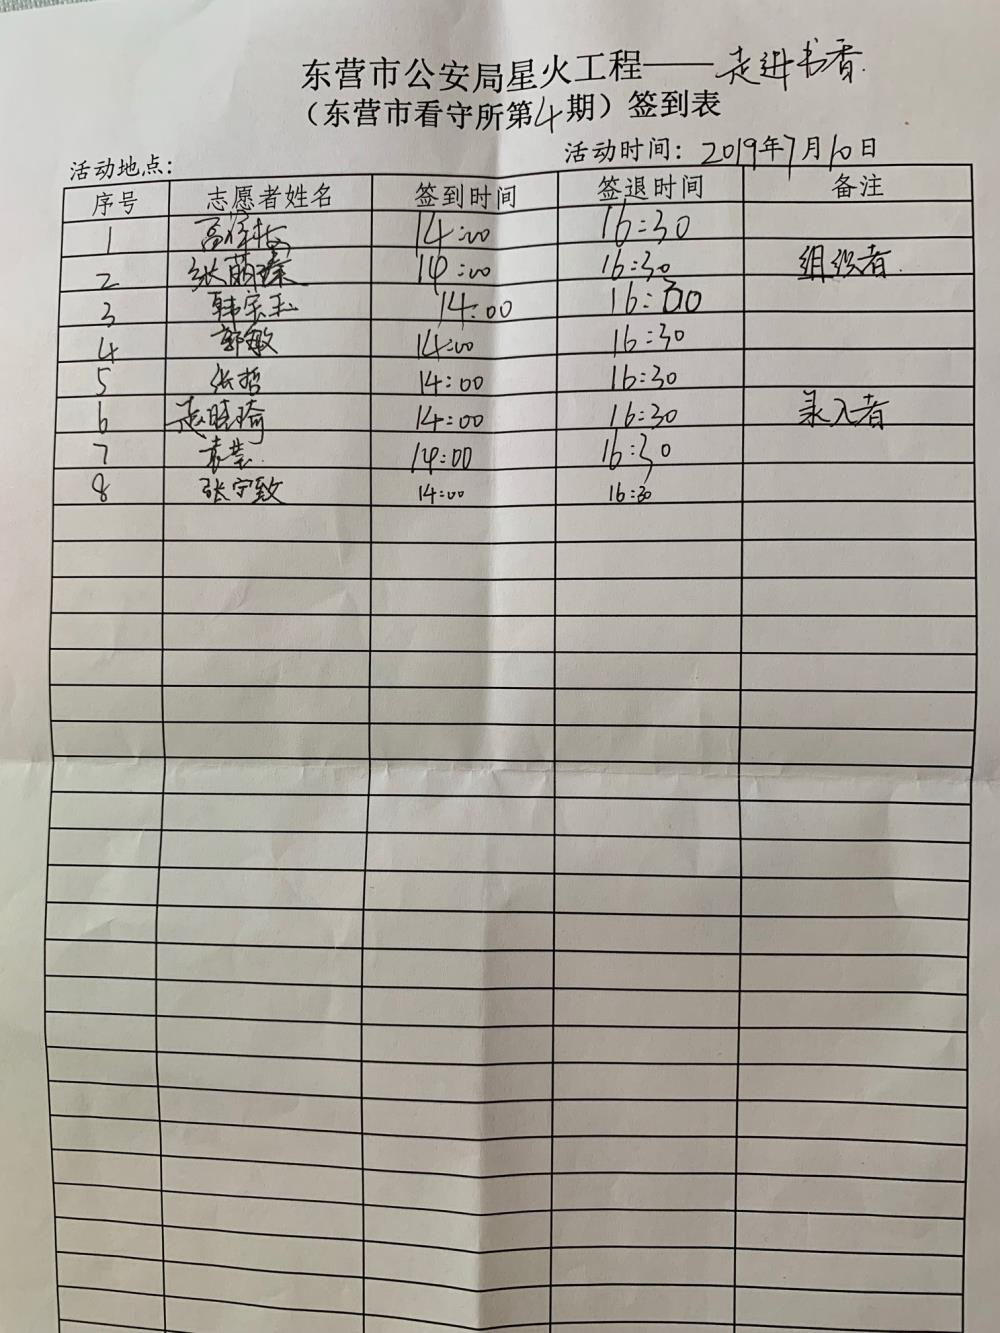 东营市公安局星火工程——走进书香
（东营市看守所第4期）签到表
活动地点： 活动时间：2019年7月10日
序号 志愿者姓名 签到时间 签退时间 备注
1 14:00 16:30
2 张萌臻 14:00 16:30 组织者
3 韩宗玉 14:00 16:30
4 郭敏 14:00 16:30
5 张哲 14:00 16:30
6 赵晓琦 14:00 16:30 录入者
7 袁莹 14:00 16:30
8 张宁致 14:00 16:30